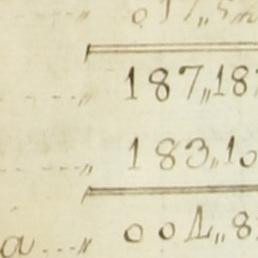 187,,187
183,,10
a...,, 004,,8